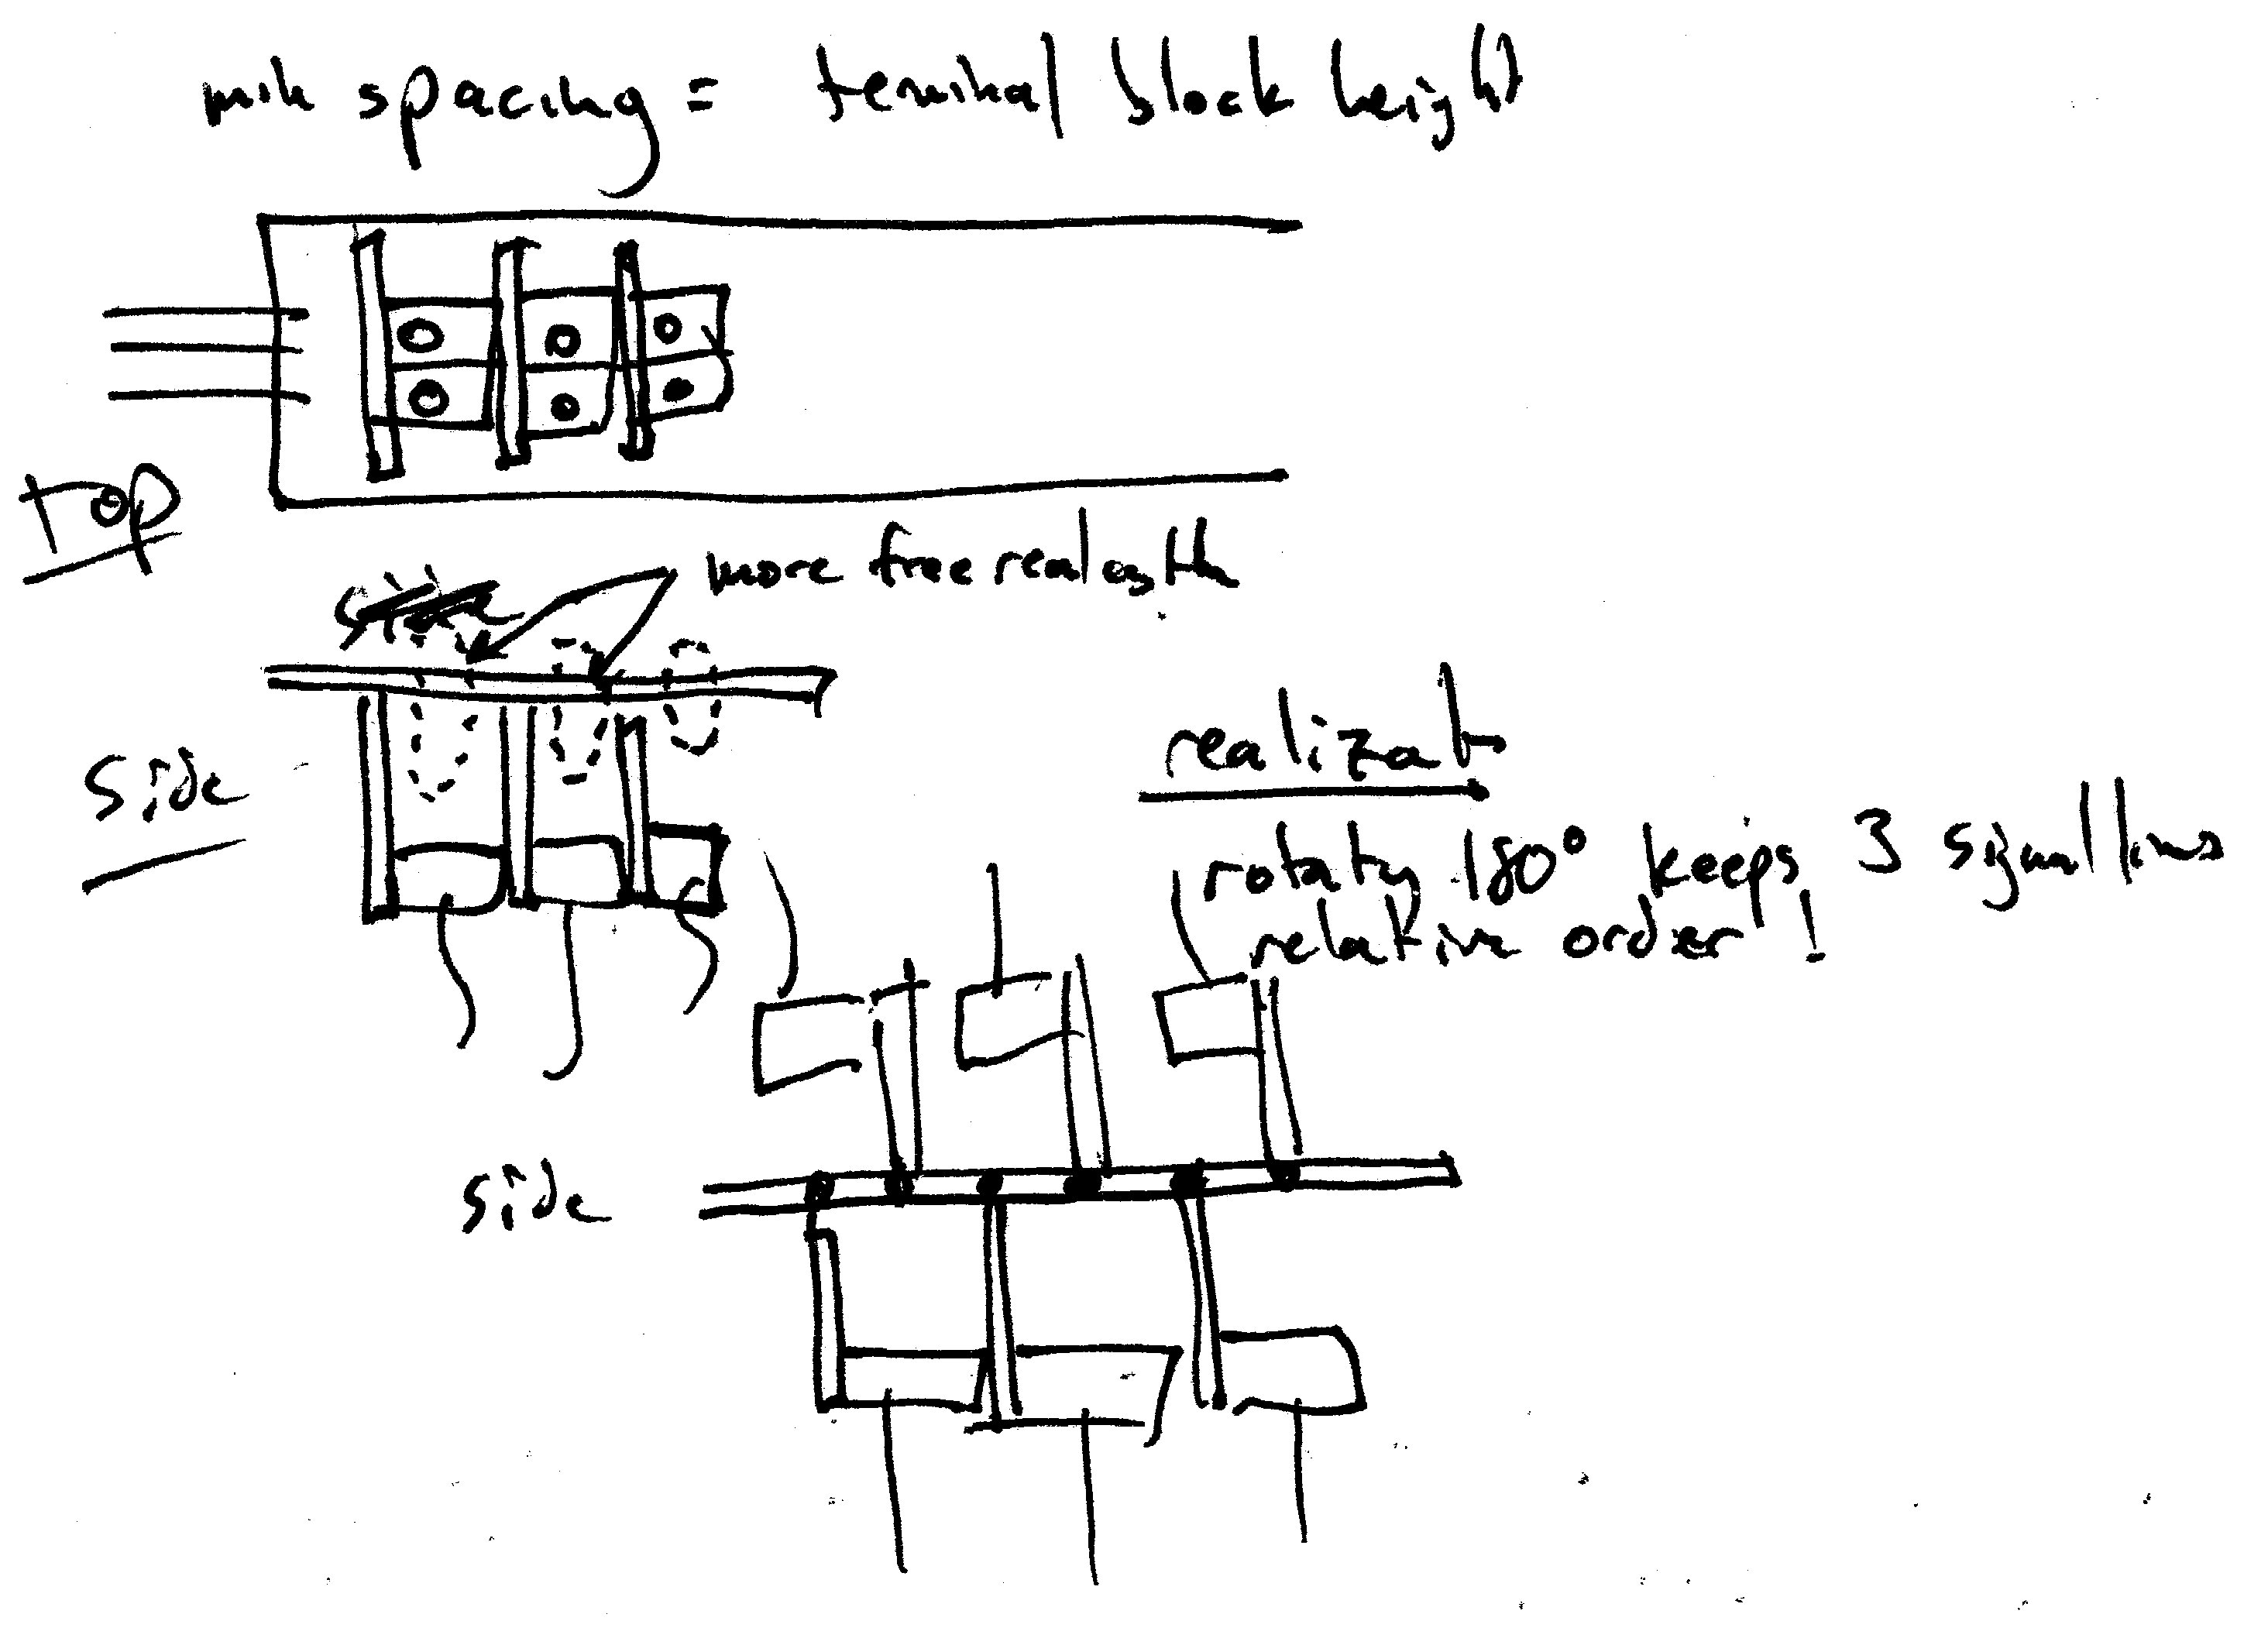 min spacing = terminal block height
TOP
more free real estate
side
side
realizat
rotaty 180° keeps 3 signal lines
relative order !
side